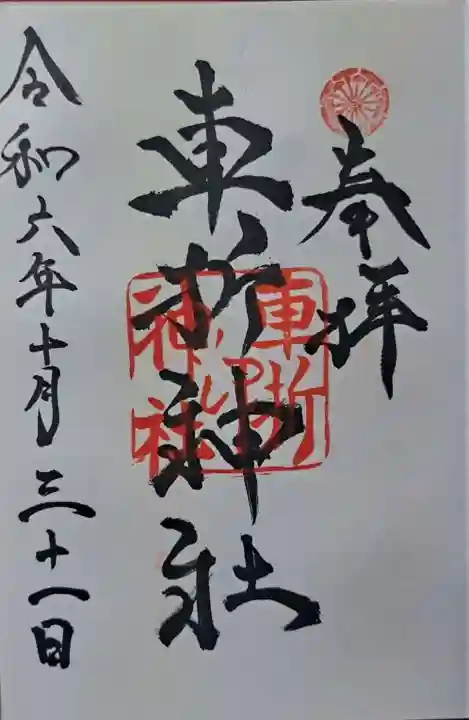 奉拝
車折神社
車折
神社
令和六年十月三十一日